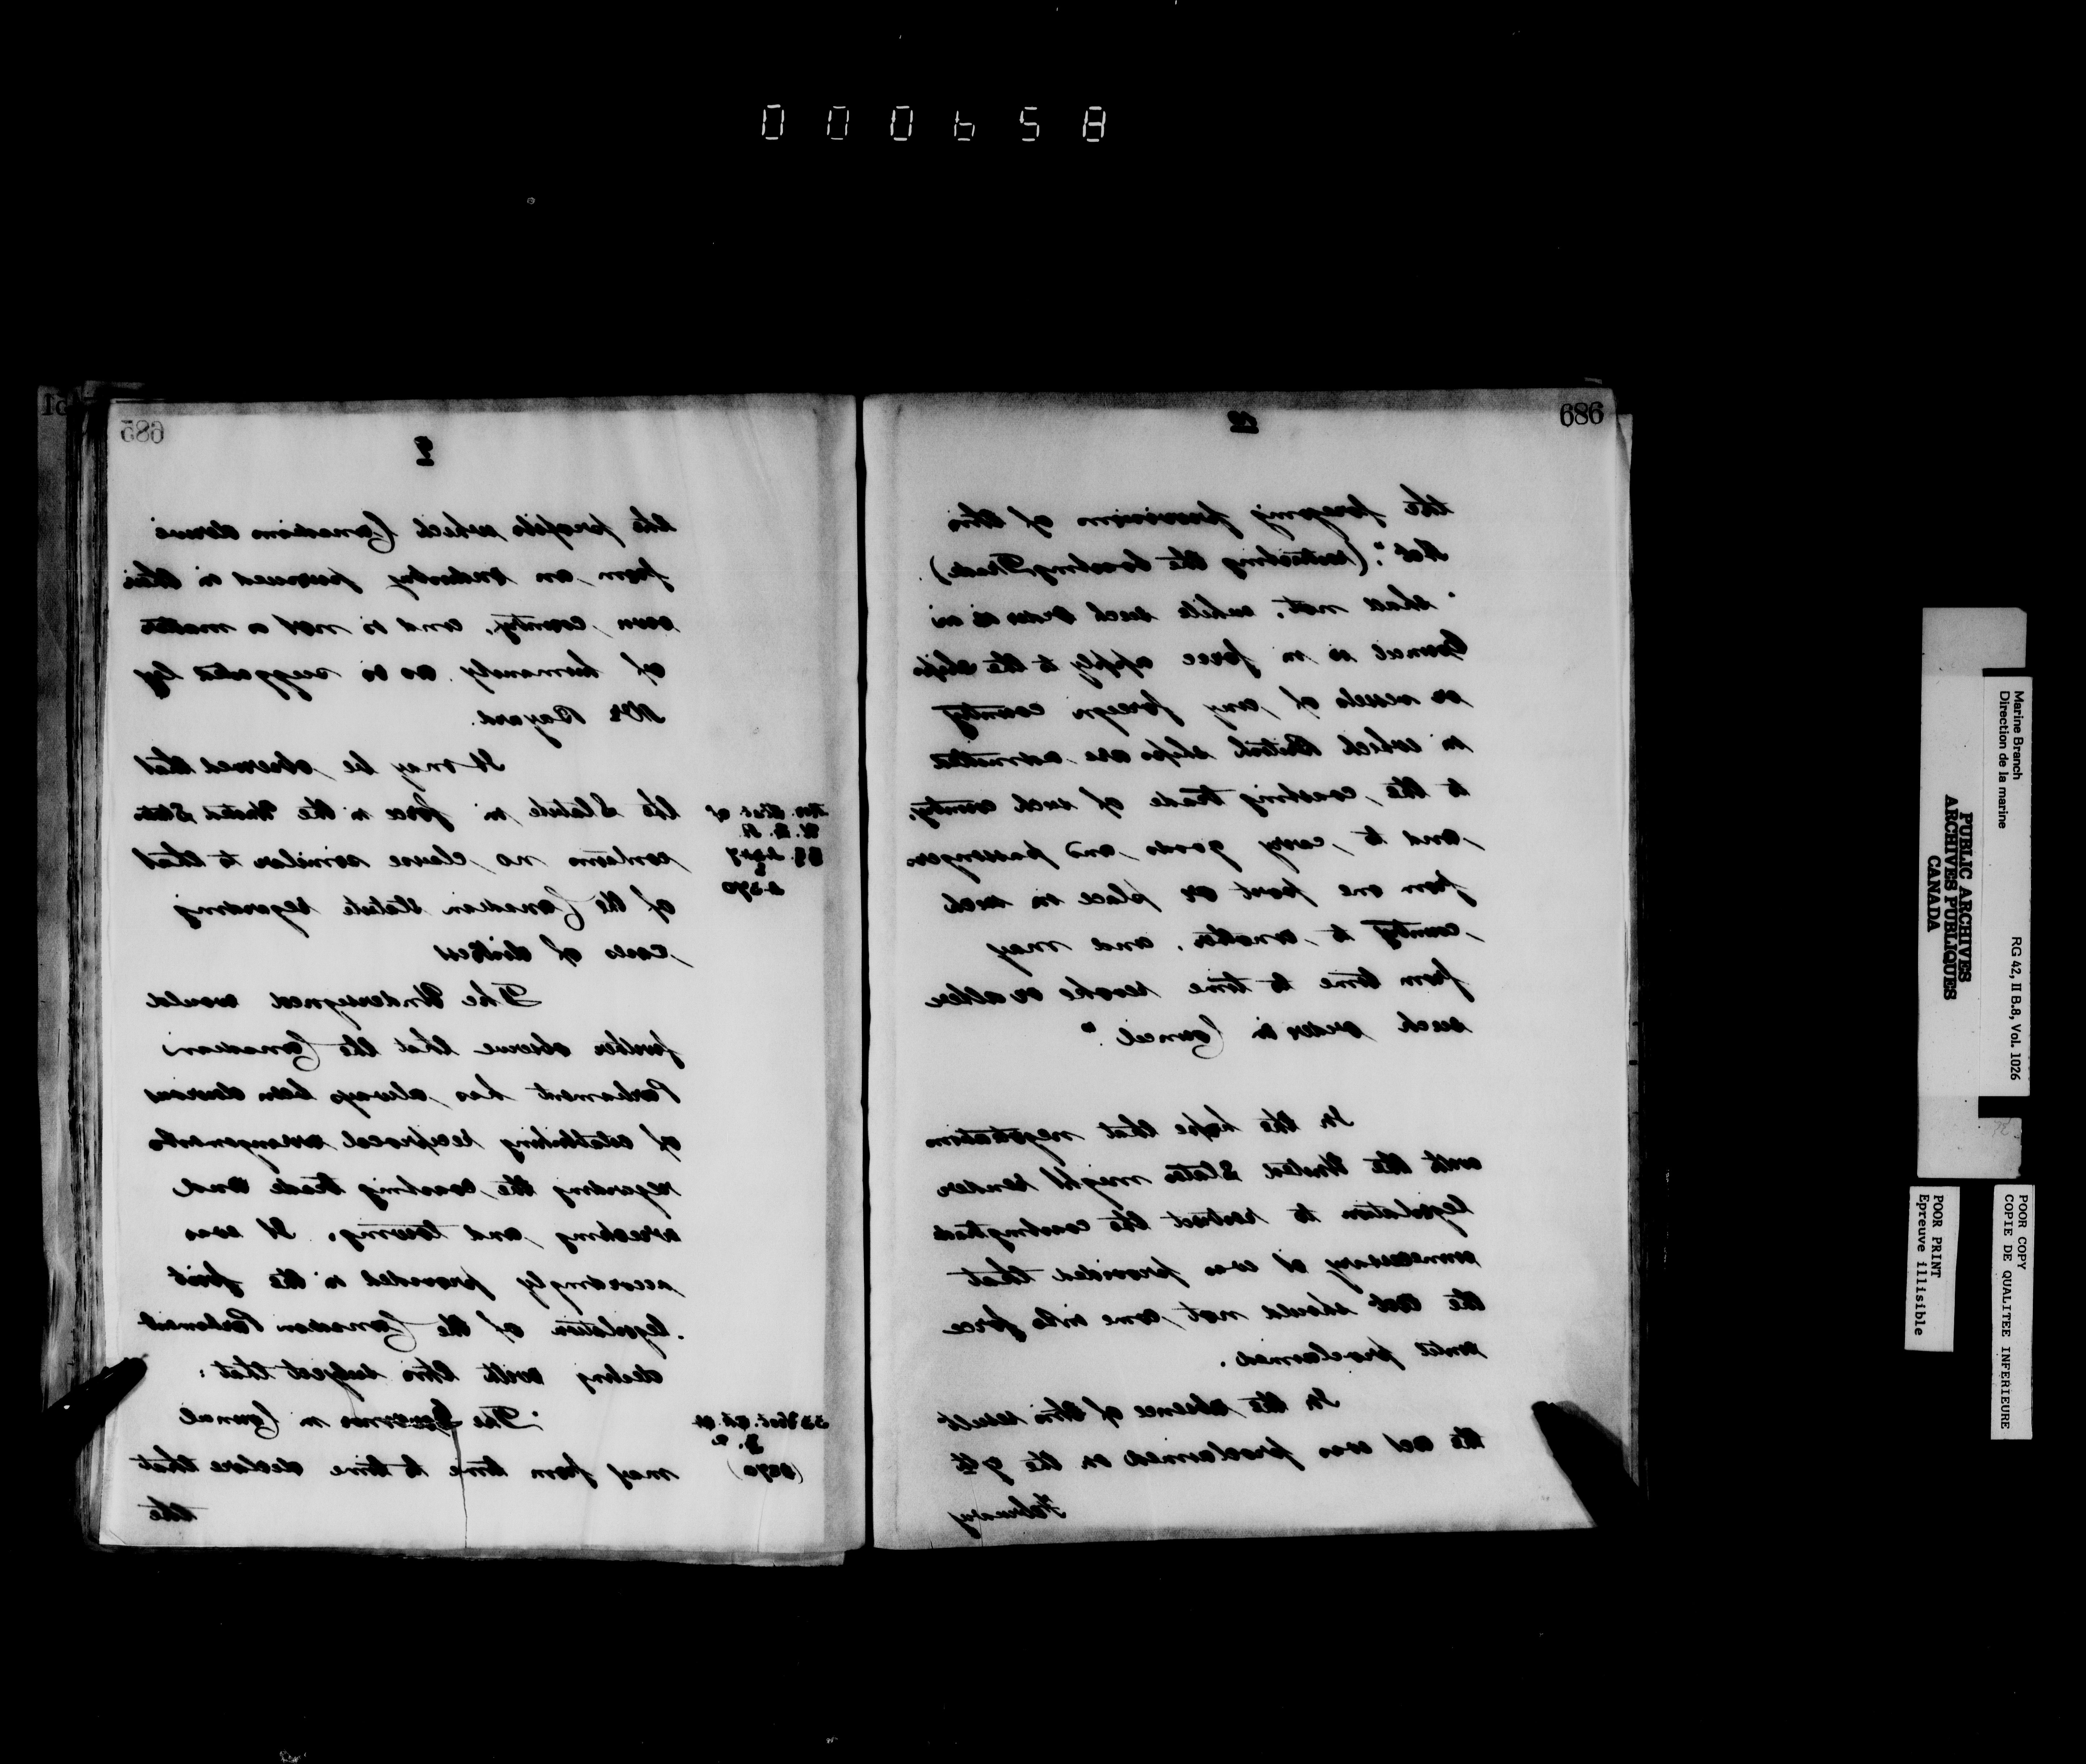 000658
685
9
the profits which Canadians derive
from an industry pursued in their
own country, and is not a matter
of humanity as is suggested by
Mr Bayard.
It may be observed that
the Statute in force in the United States
contains no clause similar to that
of the Canadian Statute regarding
cases of distress
The Undersigned would
further observe that the Canadian
Parliament has always been desirous
of establishing reciprocal arrangements
regarding the coasting trade and
wrecking and towing. It was
accordingly provided in the first
legislation of the Canadian Parliament
dealing with this subject that:
"The Governor in Council
may from time to time declare that
the
Rev. Stat. of
U. S.
4370
33 Vict. Ch. 14
S. 2.
(1870)
686
10
the foregoing provisions of this
Act", (restricting the Coasting Trade)
"shall not, while such Order in
Council is in force apply to the ships
or vessels of any foreign country
in which British ships are admitted
to the coasting trade of such country,
and to carry goods and passengers
from one port or place in such
country to another, and may
from time to time revoke or alter
such order in Council".
In the hope that negotiation
with the United States might render
legislation to restrict the coasting trade
unnecessary it was provided that
the Act should not come into force
until proclaimed.
In the absence of this result
the act was proclaimed on the 7th
February
Marine Branch
Direction de la marine
RG 42, II B.8, Vol. 1026
PUBLIC ARCHIVES
ARCHIVES PUBLIQUES
CANADA
POOR COPY
COPIE DE QUALITEE INFERIEURE
POOR PRINT
Epreuve illisible